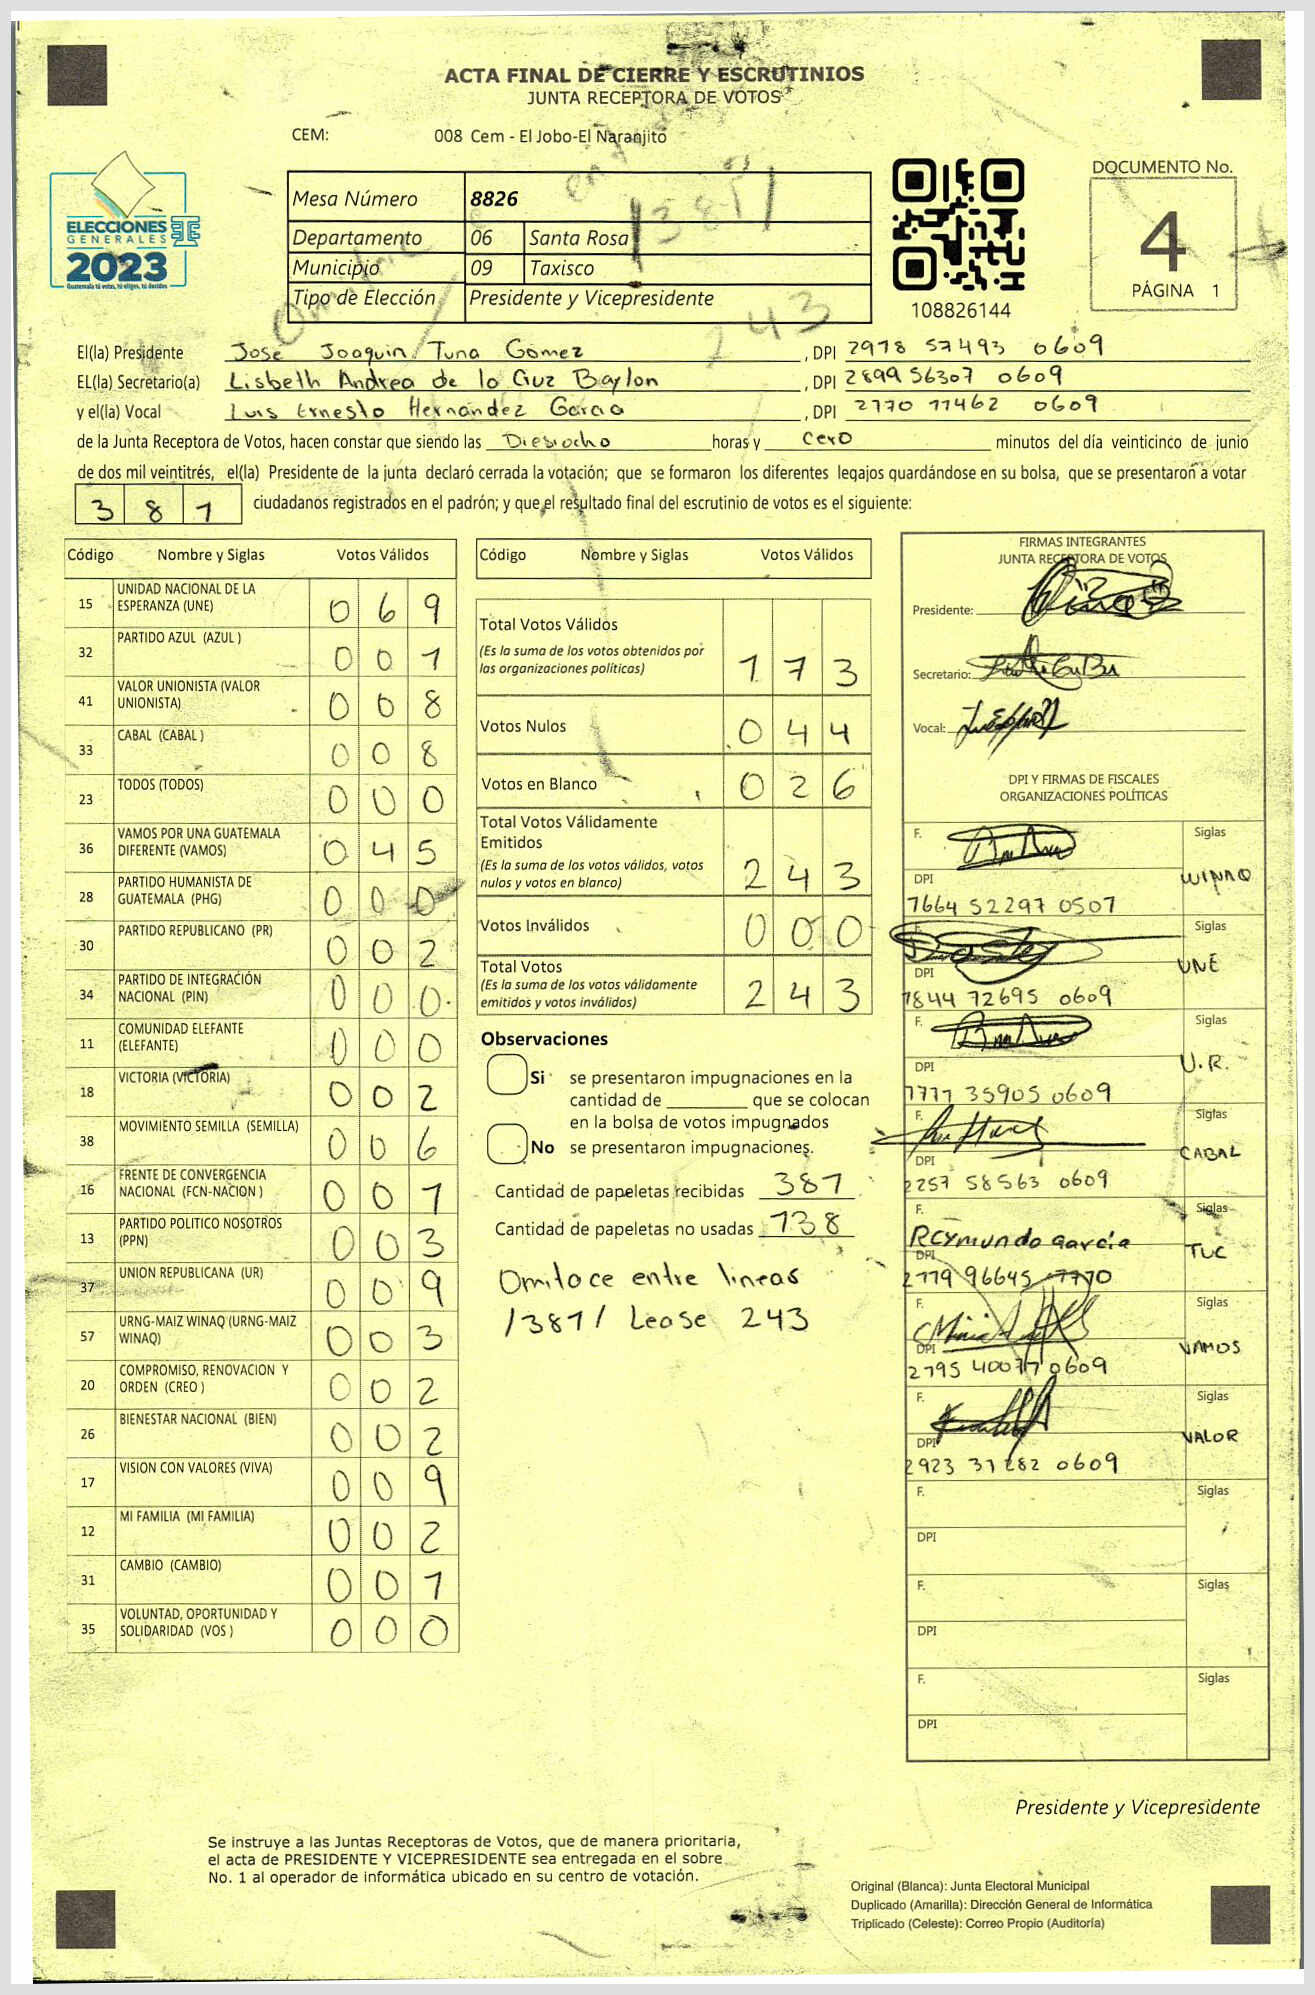 ACTA FINAL DE CIERRE Y ESCRUTINIOS
JUNTA RECEPTORA DE VOTOS
CEM: 008 Cem - El Jobo-El Naranjito
ELECCIONES
GENERALES
2023
Guatemala tú votas, tú eliges, tú decides
Mesa Número 8826
Departamento 06 Santa Rosa
Municipio 09 Taxisco
Tipo de Elección Presidente y Vicepresidente
/381/
243
108826144
DOCUMENTO No.
4
PÁGINA 1
El(la) Presidente Jose Joaquin Tuna Gomez, DPI 2978 57493 0609
EL(la) Secretario(a) Lisbeth Andrea de la Cruz Baylon, DPI 2899 56307 0609
y el(la) Vocal Luis Ernesto Hernandez Garcia, DPI 2770 11462 0609
de la Junta Receptora de Votos, hacen constar que siendo las Diesiocho horas y cero minutos del día veinticinco de junio
de dos mil veintitrés, el(la) Presidente de la junta declaró cerrada la votación; que se formaron los diferentes legajos guardándose en su bolsa, que se presentaron a votar
381 ciudadanos registrados en el padrón; y que el resultado final del escrutinio de votos es el siguiente:
Código Nombre y Siglas Votos Válidos
15 UNIDAD NACIONAL DE LA ESPERANZA (UNE) 069
32 PARTIDO AZUL (AZUL ) 001
41 VALOR UNIONISTA (VALOR UNIONISTA) 008
33 CABAL (CABAL ) 008
23 TODOS (TODOS) 000
36 VAMOS POR UNA GUATEMALA DIFERENTE (VAMOS) 045
28 PARTIDO HUMANISTA DE GUATEMALA (PHG) 000
30 PARTIDO REPUBLICANO (PR) 002
34 PARTIDO DE INTEGRACIÓN NACIONAL (PIN) 000
11 COMUNIDAD ELEFANTE (ELEFANTE) 000
18 VICTORIA (VICTORIA) 002
38 MOVIMIENTO SEMILLA (SEMILLA) 006
16 FRENTE DE CONVERGENCIA NACIONAL (FCN-NACION ) 001
13 PARTIDO POLITICO NOSOTROS (PPN) 003
37 UNION REPUBLICANA (UR) 009
57 URNG-MAIZ WINAQ (URNG-MAIZ WINAQ) 003
20 COMPROMISO, RENOVACION Y ORDEN (CREO ) 002
26 BIENESTAR NACIONAL (BIEN) 002
17 VISION CON VALORES (VIVA) 009
12 MI FAMILIA (MI FAMILIA) 002
31 CAMBIO (CAMBIO) 001
35 VOLUNTAD, OPORTUNIDAD Y SOLIDARIDAD (VOS ) 000
Código Nombre y Siglas Votos Válidos
Total Votos Válidos 173
(Es la suma de los votos obtenidos por
las organizaciones políticas)
Votos Nulos 044
Votos en Blanco 026
Total Votos Válidamente
Emitidos 243
(Es la suma de los votos válidos, votos
nulos y votos en blanco)
Votos Inválidos 000
Total Votos 243
(Es la suma de los votos válidamente
emitidos y votos inválidos)
Observaciones
Si se presentaron impugnaciones en la
cantidad de ________ que se colocan
en la bolsa de votos impugnados
No se presentaron impugnaciones.
Cantidad de papeletas recibidas 381
Cantidad de papeletas no usadas 138
Omitace entre lineas
/381/ Lease 243
FIRMAS INTEGRANTES
JUNTA RECEPTORA DE VOTOS
Presidente:
Secretario:
Vocal:
DPI Y FIRMAS DE FISCALES
ORGANIZACIONES POLÍTICAS
F. Siglas
DPI WINAQ
7664 52297 0507
F. Siglas
DPI UNE
1844 72695 0609
F. Siglas
DPI U.R.
1777 35905 0609
F. Siglas
DPI CABAL
2257 58563 0609
F. Siglas
Reymundo García
DPI TUC
2779 96645
F. Siglas
DPI VAMOS
2795 40077 0609
F. Siglas
DPI VALOR
2923 31282 0609
F. Siglas
DPI
F. Siglas
DPI
F. Siglas
DPI
Presidente y Vicepresidente
Se instruye a las Juntas Receptoras de Votos, que de manera prioritaria,
el acta de PRESIDENTE Y VICEPRESIDENTE sea entregada en el sobre
No. 1 al operador de informática ubicado en su centro de votación.
Original (Blanca): Junta Electoral Municipal
Duplicado (Amarilla): Dirección General de Informática
Triplicado (Celeste): Correo Propio (Auditoría)